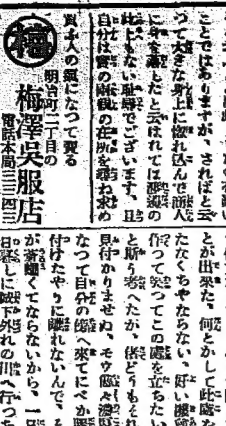 ことではありますが、さればと云
つて大きな身上に惚れ込んで商人
に身を落したと云はれては先祖の
此上もない恥辱でございます、且
自分は實の兩親の在所を尋ね求め
買ふ人の氣になつて賣る
明治町二丁目の
梅澤呉服店
電話本局三三四三
とが出來た、何とかして此處を
たなくちやならない、好い機會
作つて笑つてこの處を立ちたい
と斯う考へたが、偖どうもそれ
見付かりませぬ、モウ個々
なつて自分の傍へ來てにべか
付けたやうに離れないんで、そ
が蒼蠅くてならないから、一日
日暮しに城下外れの川へ行つた